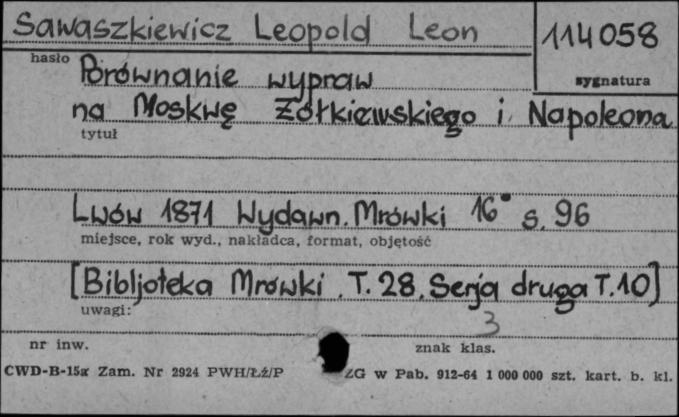 Sawaszkiewicz Leopold Leon
114058
hasło
sygnatura
Porównanie wypraw
na Moskwę Żółkiewskiego i Napoleona
tytuł
Lwów 1871 Wydawn. Mrówki 16° s. 96
miejsce, rok wyd., nakładca, format, objętość
[Bibljoteka Mrówki. T. 28. Serja druga T.10]
uwagi:
3
nr inw.
znak klas.
CWD-B-15a Zam. Nr 2924 PWH/Łź/P ZG w Pab. 912-64 1 000 000 szt. kart. b. kl.